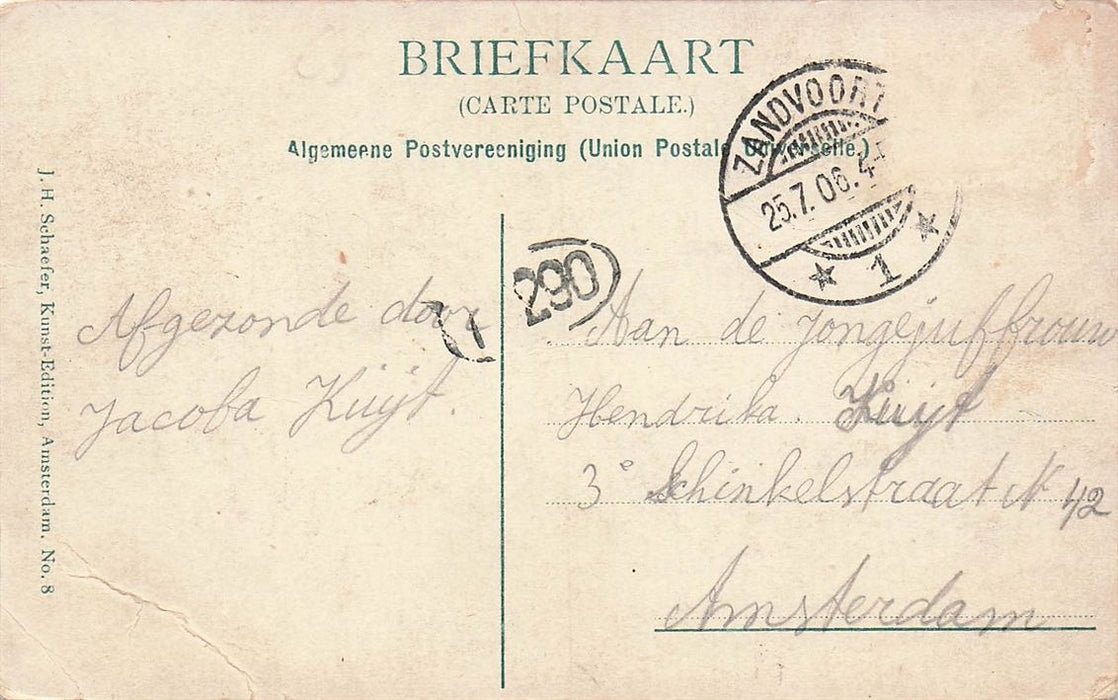 BRIEFKAART
(CARTE POSTALE.)
Algemeene Postvereeniging (Union Postale Universelle.)
ZANDVOORT
25.7.06.4-
1
290
1
Afgezonde door
Jacoba Kuijt.
Aan de Jongejuffrouw
Hendrika. Kuijt
3e Schinkelstraat N 42
Amsterdam
J. H. Schaefer, Kunst-Edition, Amsterdam. No. 8